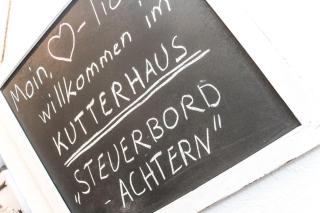 Moin, ♡-lich
willkommen im
KUTTERHAUS
„STEUERBORD
-ACHTERN“